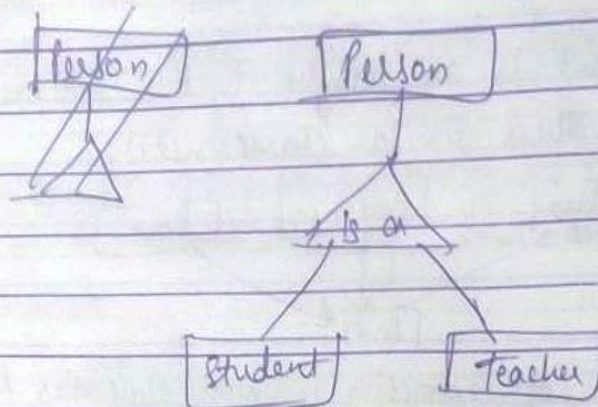 Person Person
is a
Student Teacher